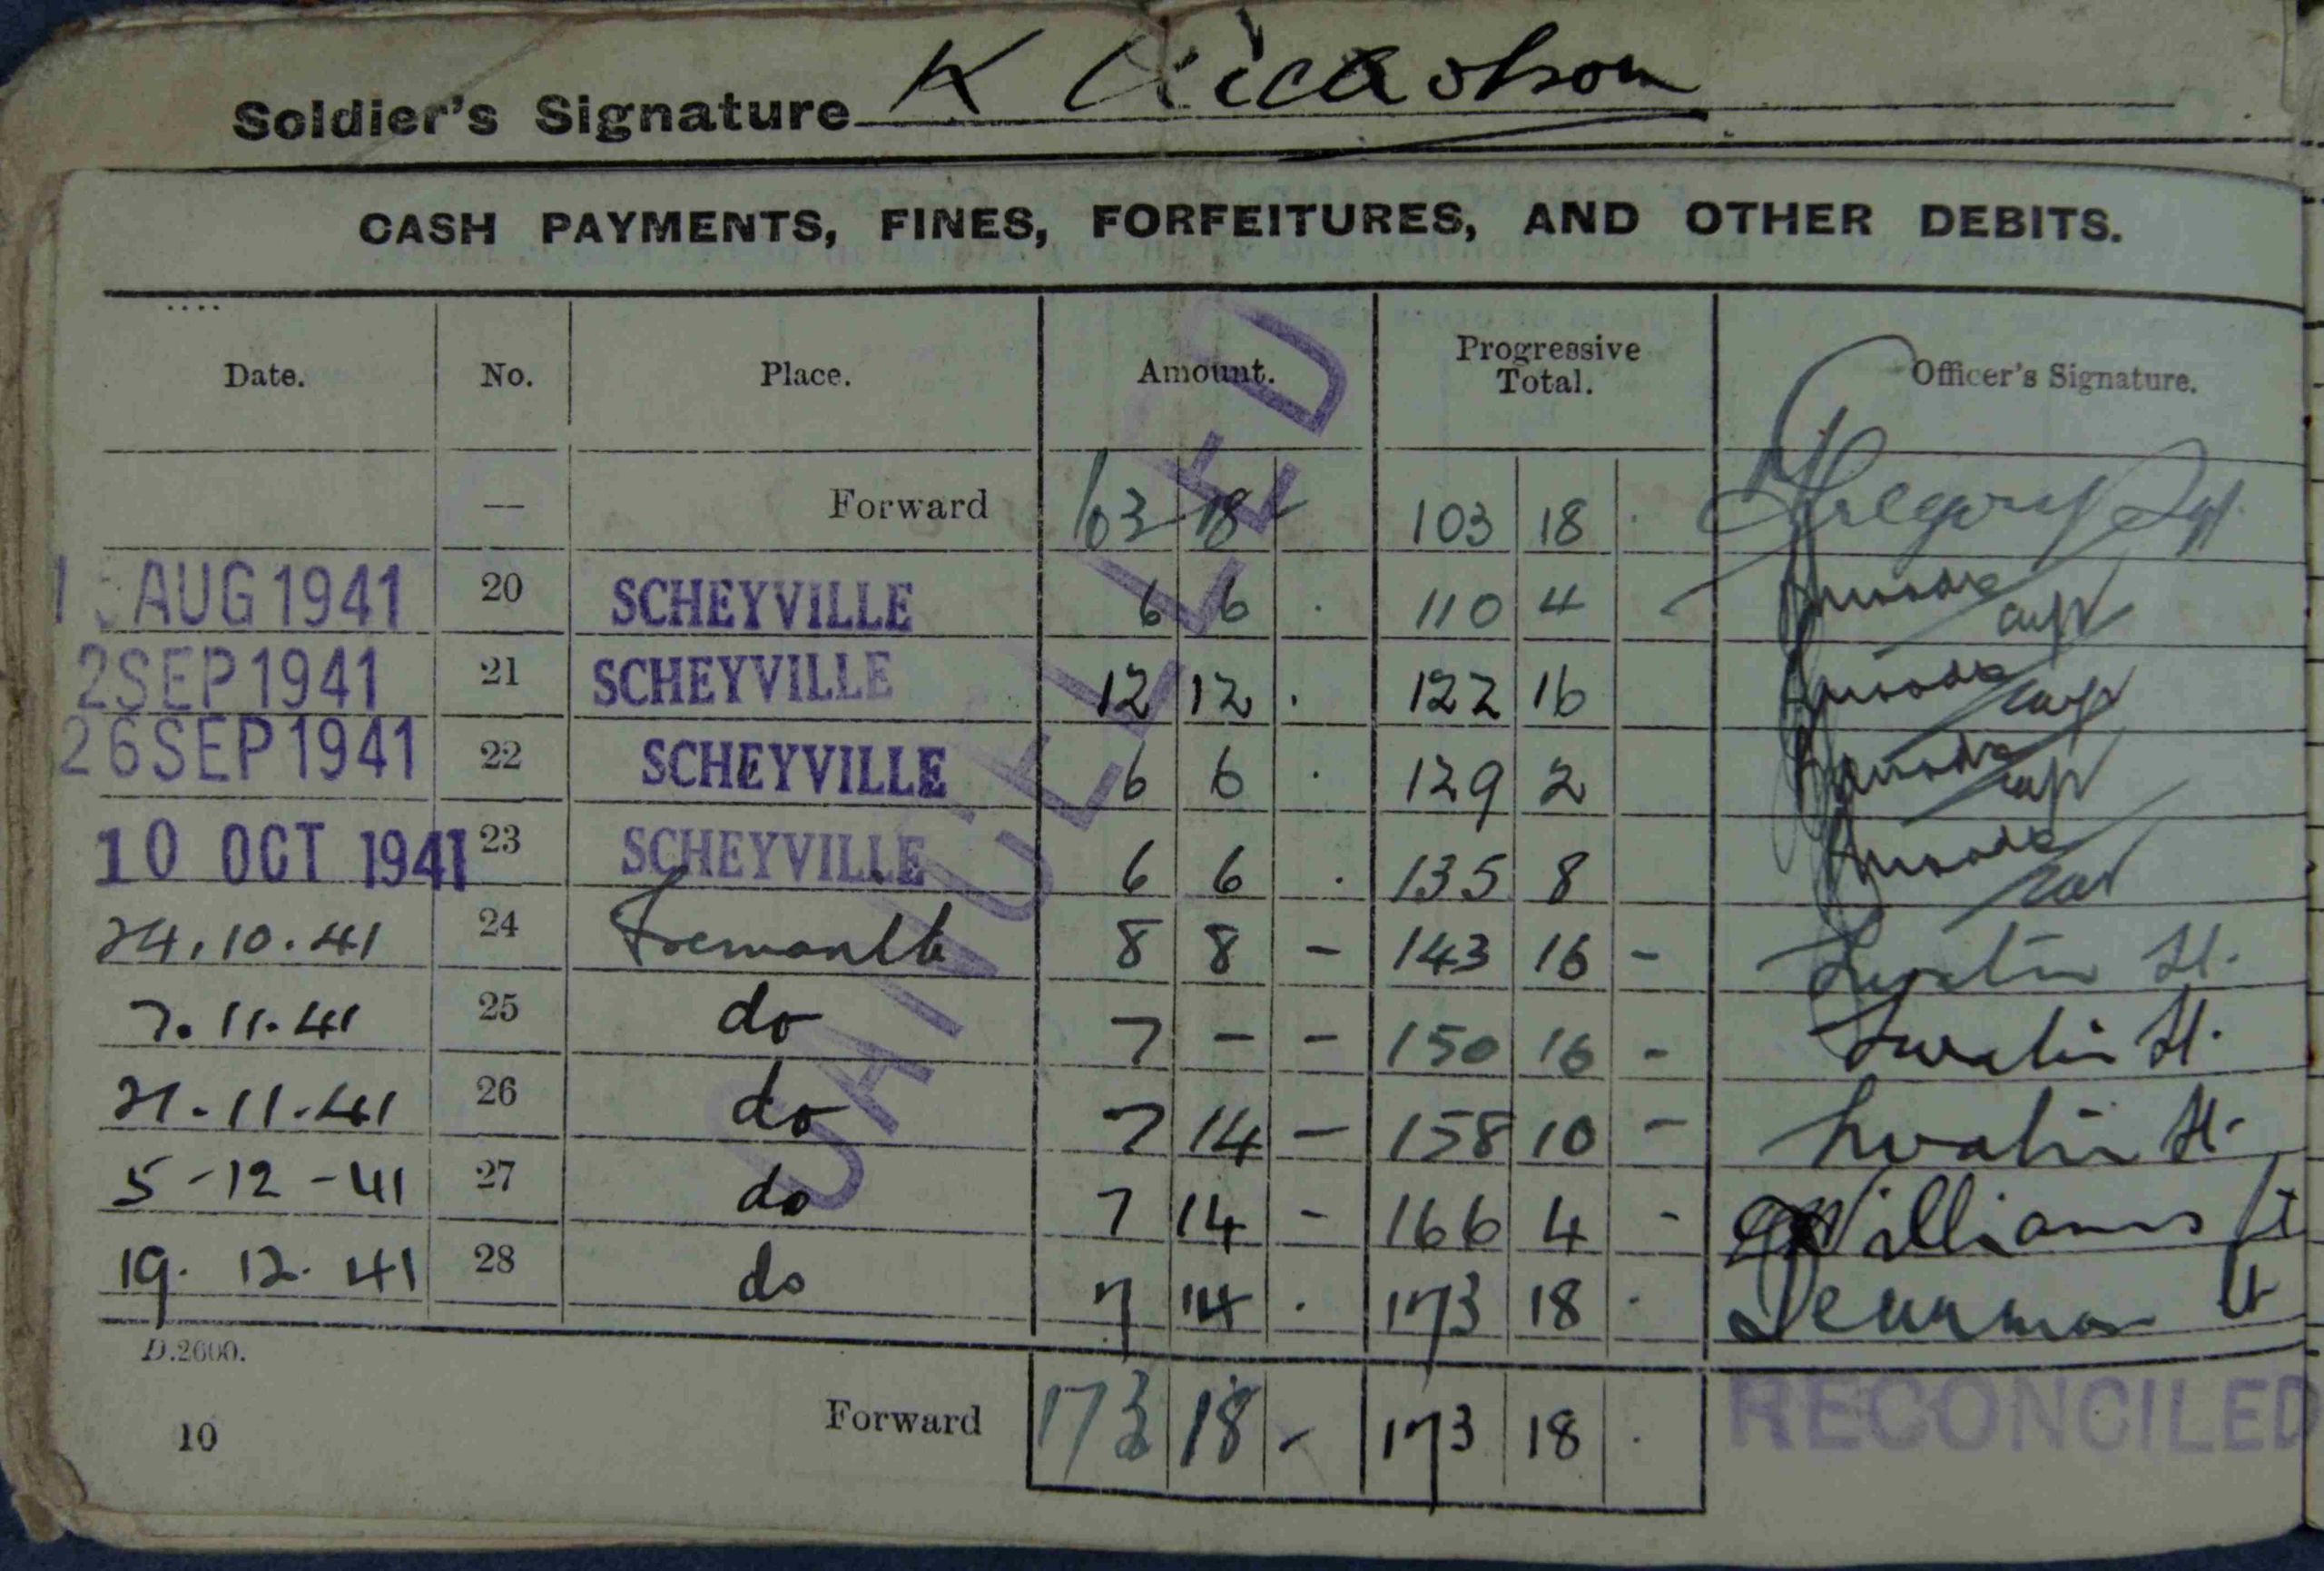 Soldier's Signature K Nicholson
CASH PAYMENTS, FINES, FORFEITURES, AND OTHER DEBITS.
Date. No. Place. Amount. Progressive Total. Officer's Signature.
— Forward 103 18 - 103 18 . Gregory
AUG 1941 20 SCHEYVILLE 6 6 . 110 4 Capt
2 SEP 1941 21 SCHEYVILLE 12 12 . 122 16 Capt
26 SEP 1941 22 SCHEYVILLE 6 6 . 129 2 Capt
10 OCT 1941 23 SCHEYVILLE 6 6 . 135 8
24.10.41 24 Fremantle 8 8 - 143 16 - Lt.
7.11.41 25 do 7 - - 150 16 - Lt.
21.11.41 26 do 7 14 - 158 10 - Lt.
5-12-41 27 do 7 14 - 166 4 - Williams Lt
19.12.41 28 do 7 14 . 173 18 . Lt
CANCELLED
D.2600.
10 Forward 173 18 - 173 18 .
RECONCILED